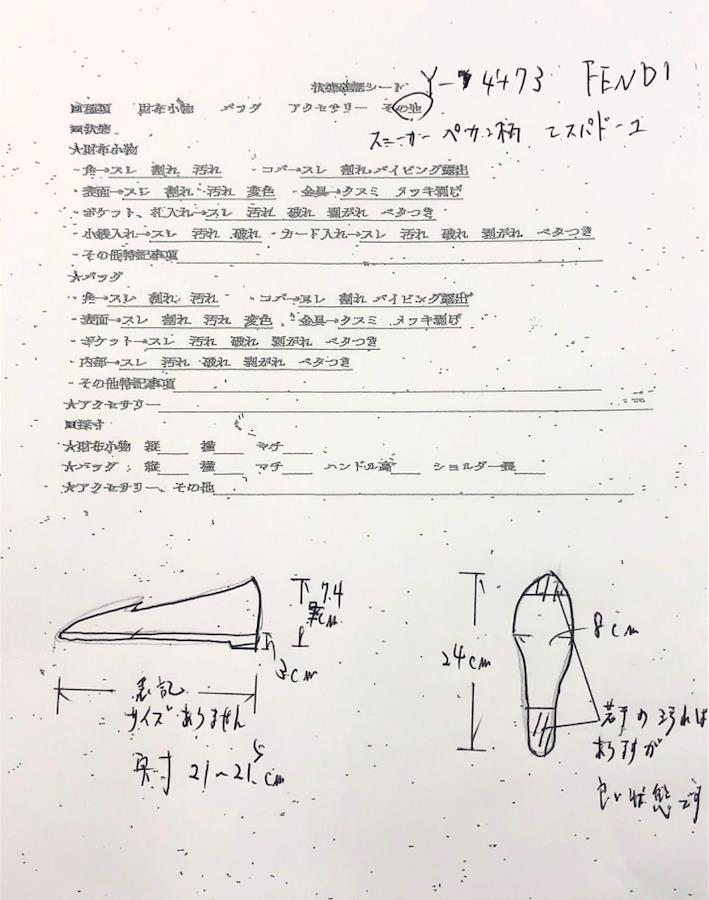 状態確認シート Y-4473 FENDI
■種類 財布小物 バッグ アクセサリー その他
スニーカー ペカン柄 エスパドーユ
■状態
★財布小物
・角→スレ 割れ 汚れ ・コバ→スレ 割れ パイピング露出
・表面→スレ 割れ 汚れ 変色 ・金具→クスミ メッキ剥げ
・ポケット、札入れ→スレ 汚れ 破れ 剥がれ ベタつき
・小銭入れ→スレ 汚れ 破れ ・カード入れ→スレ 汚れ 破れ 剥がれ ベタつき
・その他特記事項
★バッグ
・角→スレ 割れ 汚れ ・コバ→スレ 割れ パイピング露出
・表面→スレ 割れ 汚れ 変色 ・金具→クスミ メッキ剥げ
・ポケット→スレ 汚れ 破れ 剥がれ ベタつき
・内部→スレ 汚れ 破れ 剥がれ ベタつき
・その他特記事項
★アクセサリー
■採寸
★財布小物 縦 横 マチ
★バッグ 縦 横 マチ ハンドル高 ショルダー長
★アクセサリー、その他
7.4
cm
3cm
表記
サイズありません
実寸 21~21.5cm
24cm
8cm
若干の汚れは
ありますが
良い状態です